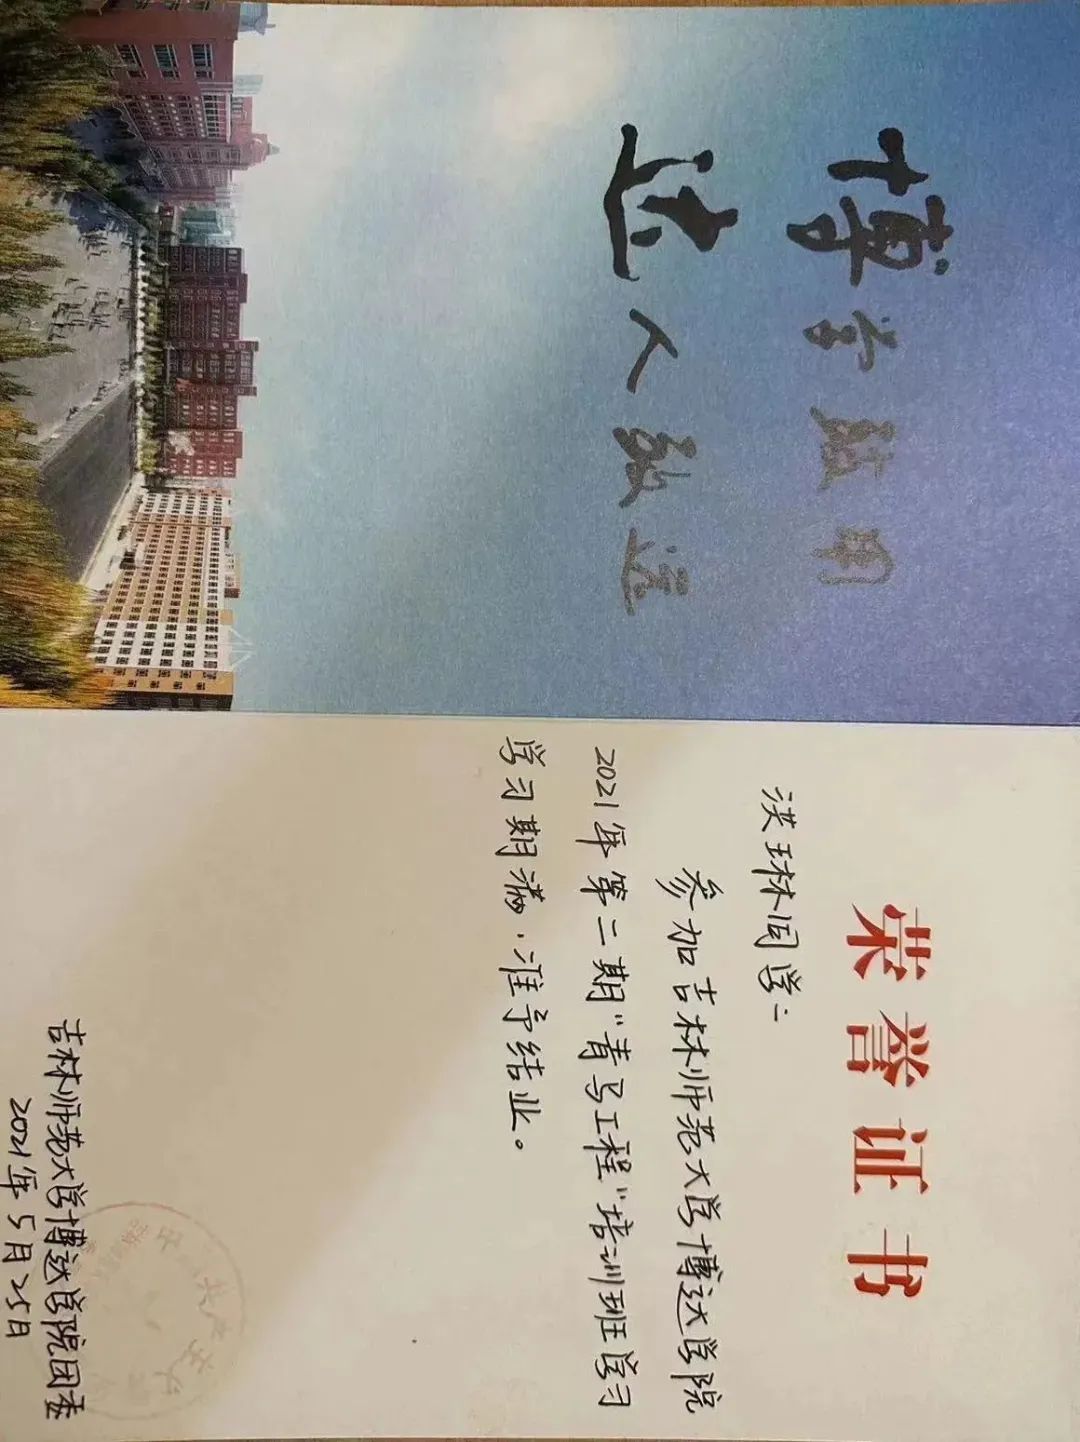 博学致用
达人致远
荣誉证书
洪琳林同学：
参加吉林师范大学博达学院
2021年第二期“青马工程”培训班学习
学习期满，准予结业。
吉林师范大学博达学院团委
2021年5月25日
共产主义